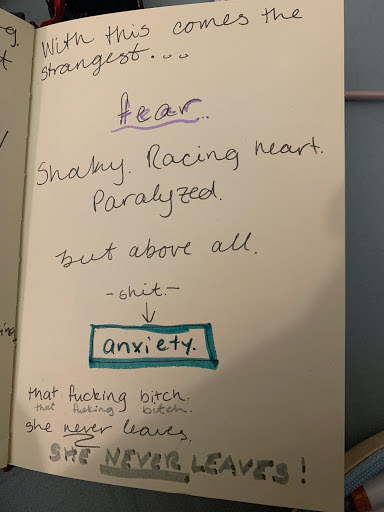 With this comes the
strangest...
fear..
Shaky. Racing heart.
Paralyzed.
but above all.
-shit.-
anxiety.
that fucking bitch.
that fucking bitch.
she never leaves.
SHE NEVER LEAVES!